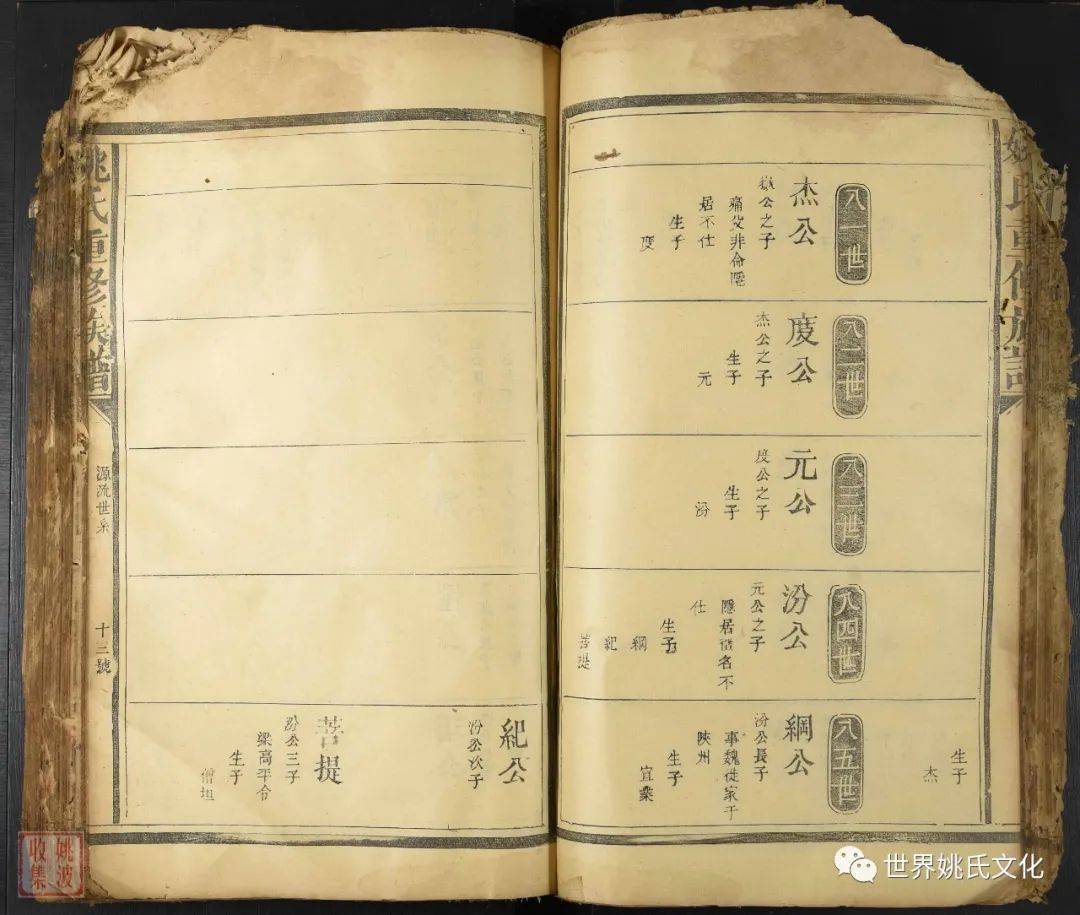 生子
杰
八一世
杰公
公之子
痛父非命隱
居不仕
生子
度
八二世
度公
杰公之子
生子
元
八三世
元公
度公之子
生子
汾
八四世
汾公
元公之子
隱居 名不
仕
生子
綱
紀
菩提
八五世
綱公
汾公長子
事魏徙家于
陝州
生子
宜業
紀公
汾公次子
菩提
汾公三子
梁高平令
生子
僧坦
姚氏重修族譜
源流世系
十三號
姚氏重修族譜
姚波
收集
世界姚氏文化